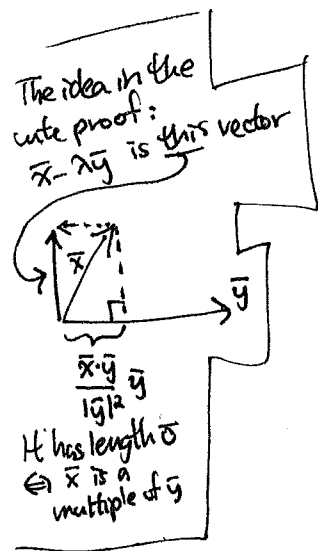 The idea in the
cute proof:
x̄ - λȳ is this vector
x̄
ȳ
x̄·ȳ
|ȳ|² ȳ
It has length 0
⇔ x̄ is a
multiple of ȳ